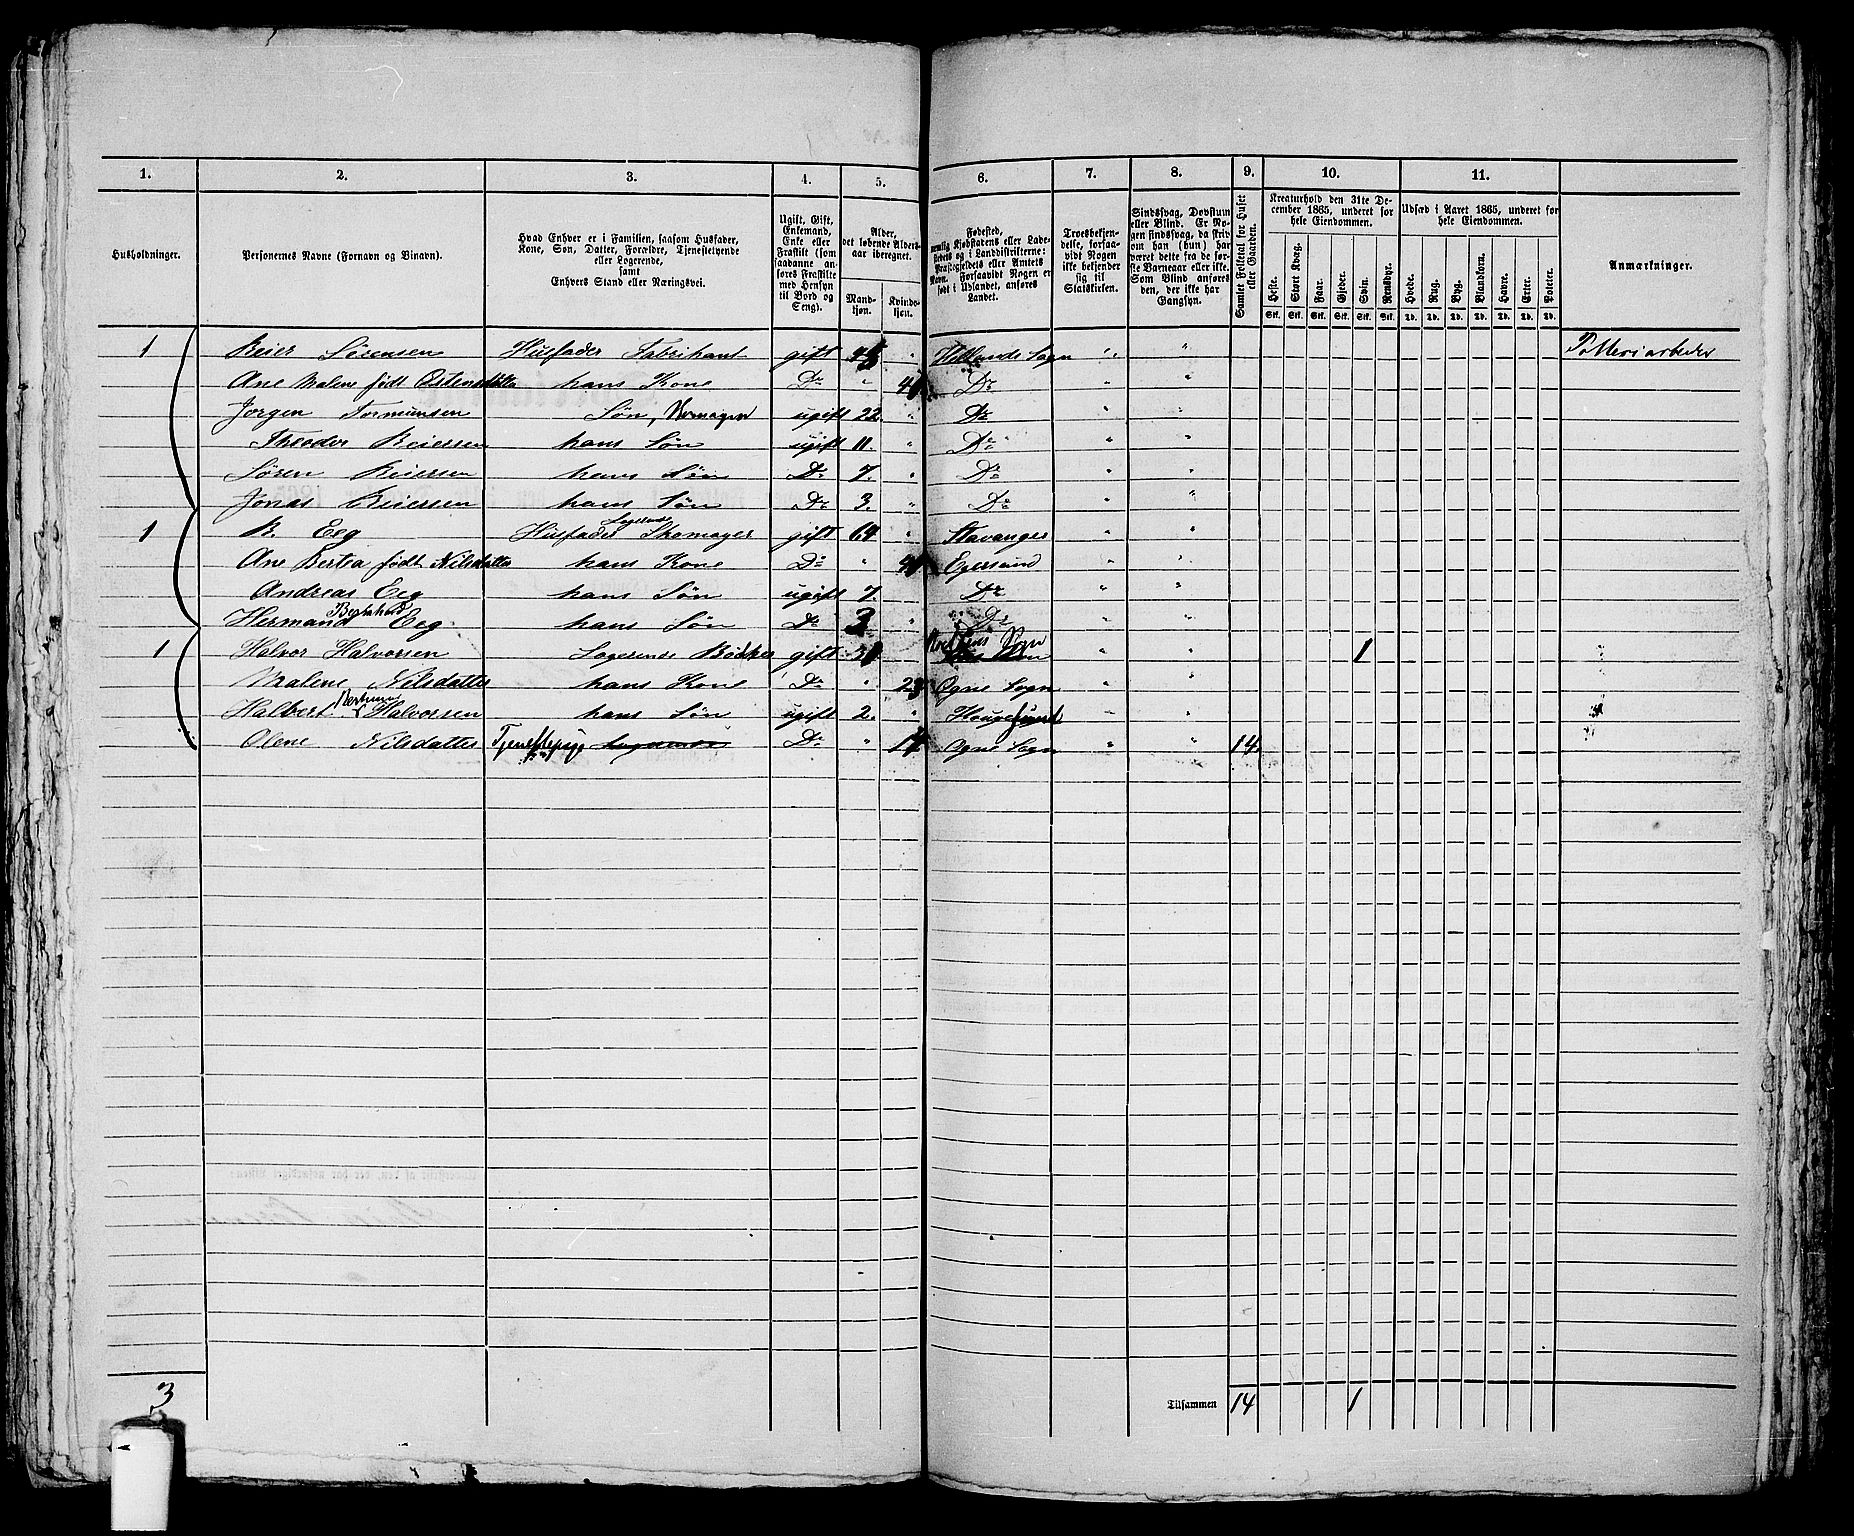 1. 2. 3. 4. 5. 6. 7. 8. 9. 10. 11.
Husholdninger.
Personernes Navne (Fornavn og Binavn).
Hvad Enhver er i Familien, saasom Husfader,
Kone, Søn, Datter, Forældre, Tjenestetyende
eller Logerende,
samt
Enhvers Stand eller Næringsvei.
Ugift, Gift,
Enkemand,
Enke eller
Fraskilt (som
saadanne an-
føres Fraskilte
med Hensyn
til Bord og
Seng).
Alder,
det løbende Alders-
aar iberegnet.
Mand-
kjøn.
Kvinde-
kjøn.
Fødested,
nemlig Kjøbstadens eller Lade-
stedets og i Landdistrikterne:
Præstegjeldets eller Amtets
Navn. Forsaavidt Nogen er
født i Udlandet, anføres
Landet.
Troesbekjen-
delse, forsaa-
vidt Nogen
ikke bekjender
sig til
Statskirken.
Sindssvag, Døvstum
eller Blind. Er No-
gen sindssvag, da skriv
om han (hun) har
været dette fra de før-
ste Barneaar eller ikke.
Som Blind anføres
den, der ikke har
Gangsyn.
Samlet Folketal for Huset
eller Gaarden.
Kreaturhold den 31te De-
cember 1865, underet for
hele Eiendommen.
Heste. Stort Kvæg. Faar. Gjeder. Svin. Rensdyr.
Stk. Stk. Stk. Stk. Stk. Stk.
Udsæd i Aaret 1865, underet for
hele Eiendommen.
Hvede. Rug. Byg. Blandkorn. Havre. Erter. Poteter.
Td. Td. Td. Td. Td. Td. Td.
Anmærkninger.
1 Beier Sørensen Husfader Fabrikant gift " Hellands Sogn " " Potteriarbeder
Ane Malene født Ostensdatter hans Kone Do " Do " "
Jørgen Tormunsen Søn, ugift 22. " Do " "
Theodor Beiersen hans Søn ugift 11. " Do " "
Sören Beiersen hans Søn Do 7. " Do " "
Jonas Beiersen hans Søn Do 3. " Do " "
1 B. Eeg Husfader Logerende Skomager gift 64 " Stavanger " "
Ane Bertea født Nilsdatter hans Kone Do " Egersund " "
Andreas Eeg hans Søn ugift 7. " Do " "
Hermand Eeg hans Søn Do 3 " Do " "
1 Halvor Halvorsen Logerende Bødker gift Sogn " " 1
Malene Nilsdatter hans Kone Do " 23 Ogne Sogn " "
Halbert Halvorsen hans Søn ugift 2. " Hougesund " "
Olene Nilsdatter Tjenestepige Logerende Do " 17 Ogne Sogn " " 14.
3 Tilsammen 14 1